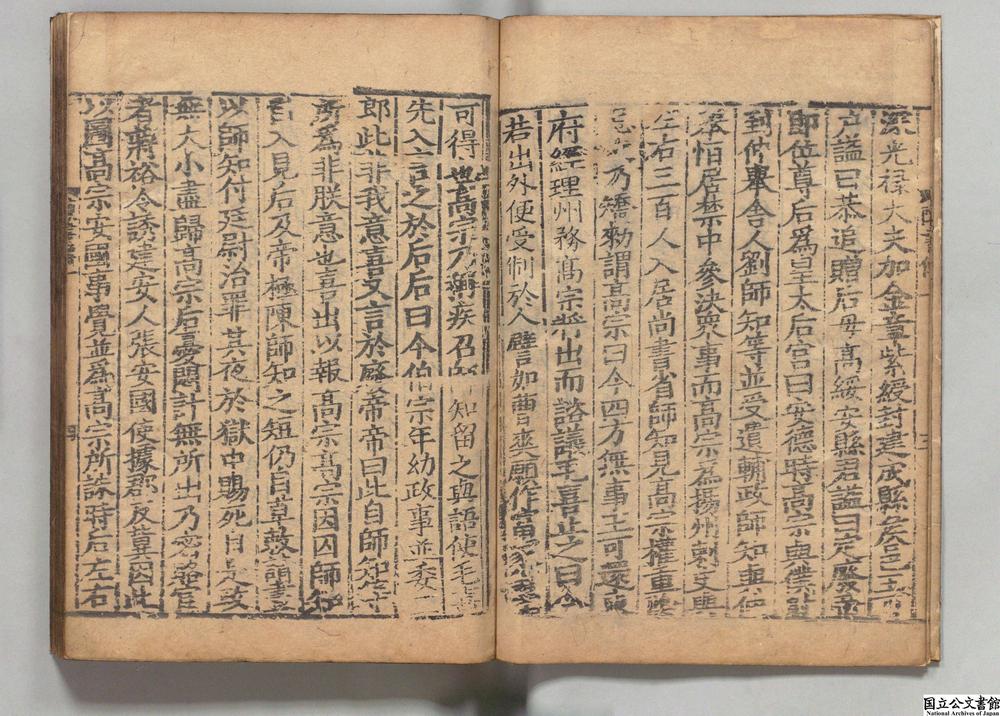 深光祿大夫加金章紫綬封建成縣矦邑五百
戶謚曰恭追贈后母高綏安縣君謚曰定廢帝
即位尊后爲皇太后宮曰安德時高宗與僕射
到仲舉舍人劉師知等並受遺輔政師知與仲
舉恒居禁中參決衆事而高宗為揚州刺史與
左右三百人入居尚書省師知見高宗權重
忌乃矯勑謂高宗曰今四方無事王可還東
府經理州務高宗將出而諮議毛喜止之曰今
若出外便受制於人譬如曹爽願作富家
可得也高宗乃稱疾召師知留之與語使毛喜
先入言之於后后曰今伯宗年幼政事並委二
郎此非我意喜又言於廢帝帝曰此自師知等
所為非朕意也喜出以報高宗高宗因囚師知
自入見后及帝極陳師知之短仍自草勑請畫
以師知付廷尉治罪其夜於獄中賜死自是政
無大小盡歸高宗后憂悶計無所出乃密賂宦
者蔣裕令誘建安人張安國使據郡反冀因此
以圖高宗安國事覺並爲高宗所誅時后左右
國立公文書館
National Archives of Japan